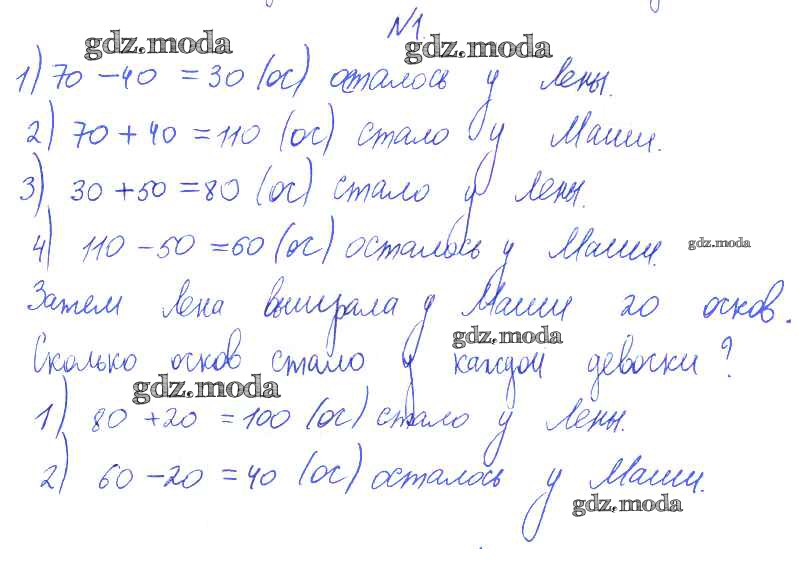 №1.
gdz.moda gdz.moda
1) 70 - 40 = 30 (ос) осталось у Лены.
2) 70 + 40 = 110 (ос) стало у Маши.
3) 30 + 50 = 80 (ос) стало у Лены.
4) 110 - 50 = 60 (ос) осталось у Маши. gdz.moda
Затем Лена выиграла у Маши 20 осков.
gdz.moda
Сколько осков стало у каждой девочки?
gdz.moda
1) 80 + 20 = 100 (ос) стало у Лены.
2) 60 - 20 = 40 (ос) осталось у Маши.
gdz.moda